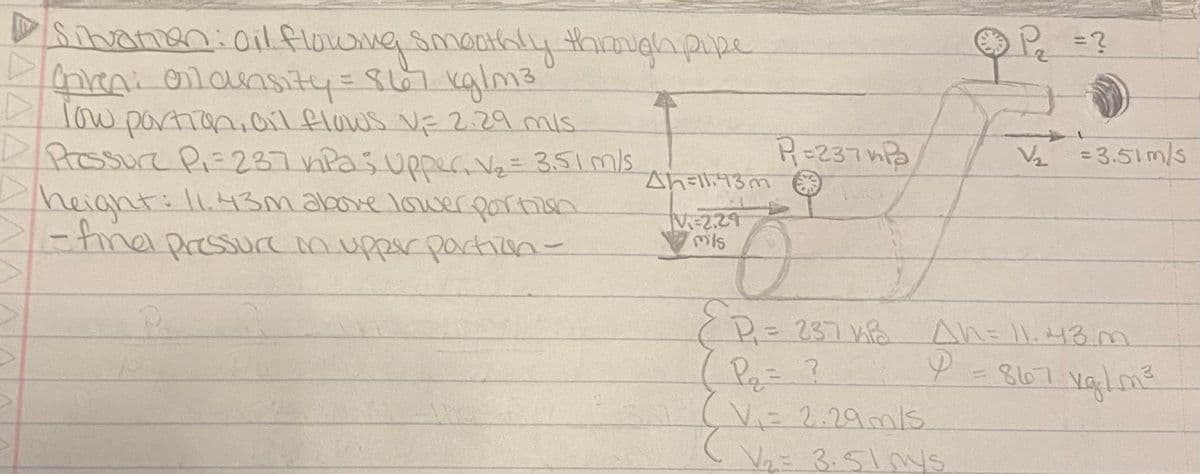 Situation: oil flowing smoothly through pipe
Given: oil density = 867 kg/m3
low portion, oil flows V₁= 2.29 m/s
Pressure P₁=237 kPa; Upper, V₂= 3.51 m/s
height: 11.43m above lower portion
- find pressure in upper portion -
P₂ =?
P₁=237 kPa
V₂ =3.51m/s
Δh=11.43m
V₁=2.29
m/s
P₁ = 237 kPa Δh= 11.43 m
P₂= ? ρ = 867 kg/m³
V₁= 2.29m/s
V₂= 3.51 m/s